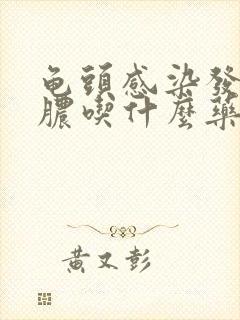 龟頭感染發
膿喫什麼藥
黃又彭